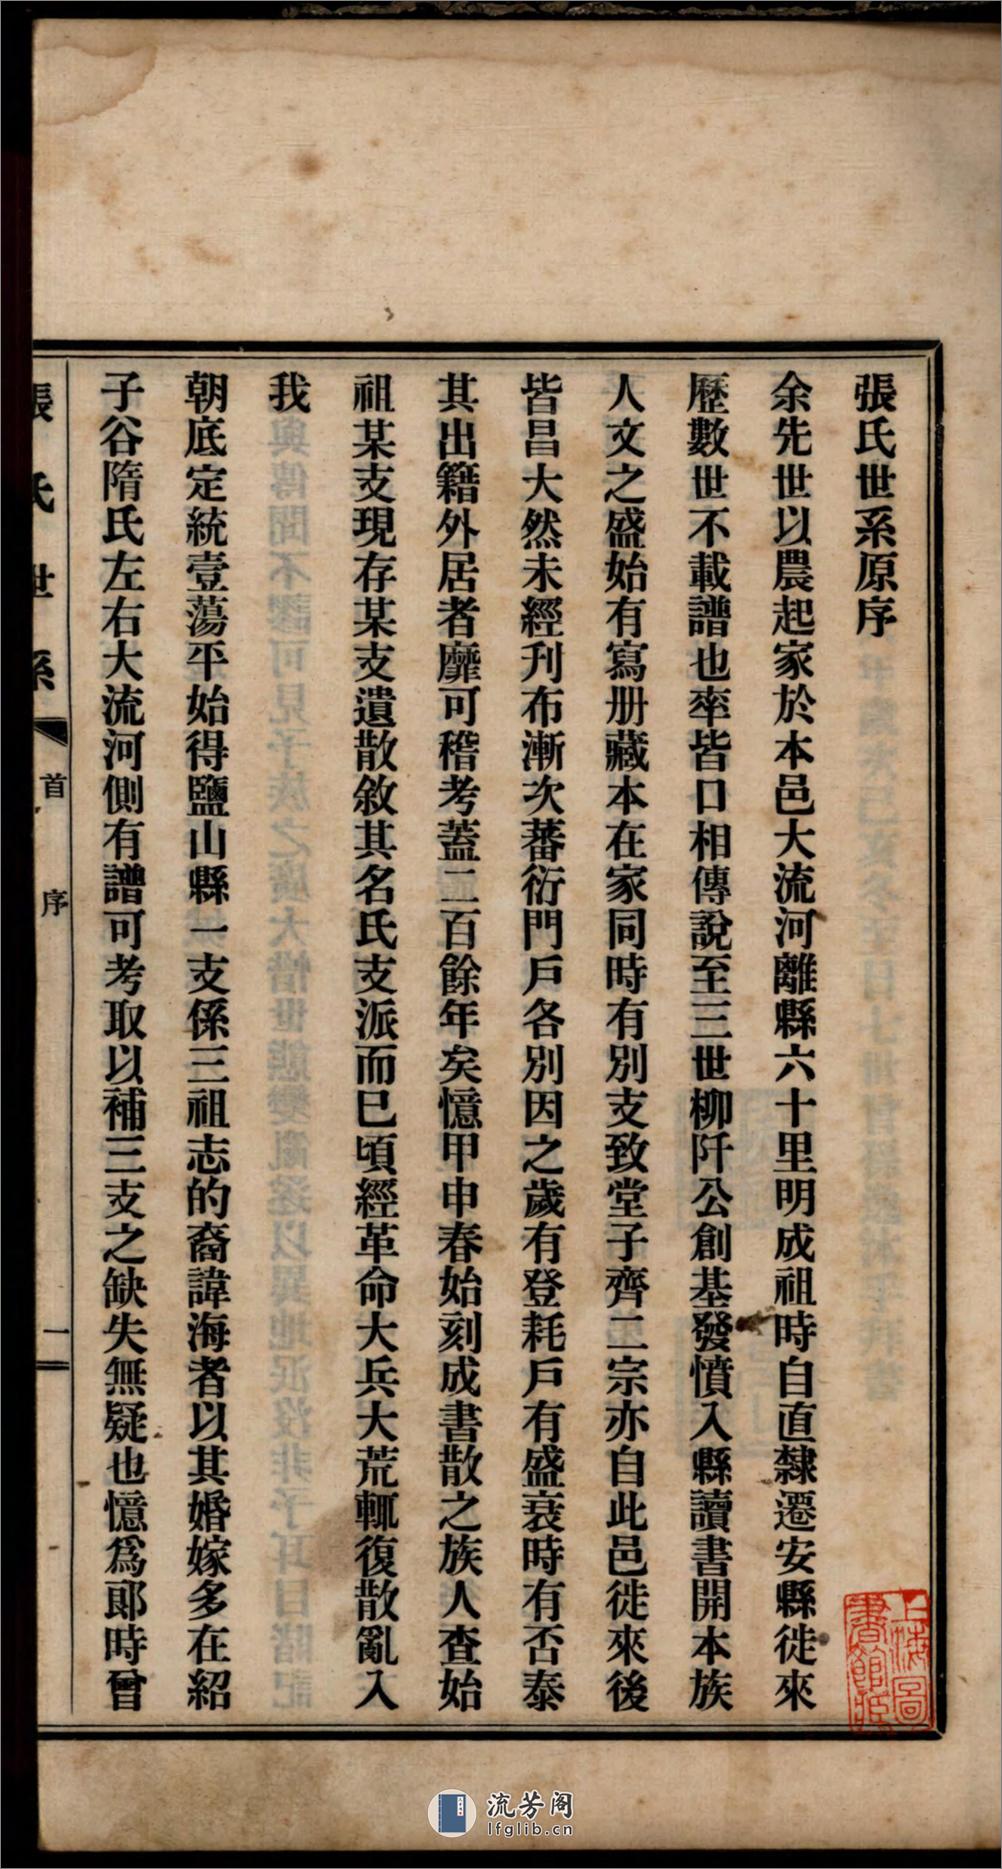 張氏世系原序
余先世以農起家於本邑大流河離縣六十里明成祖時自直隸遷安縣徙來
歷數世不載譜也率皆口相傳說至三世柳阡公創基發憤入縣讀書開本族
人文之盛始有寫册藏本在家同時有別支致堂子齊二宗亦自此邑徙來後
皆昌大然未經刊布漸次蕃衍門戶各別因之歲有登耗戶有盛衰時有否泰
其出籍外居者靡可稽考蓋二百餘年矣憶甲申春始刻成書散之族人查始
祖某支現存某支遺散敘其名氏支派而已頃經革命大兵大荒輒復散亂入
我
朝底定統壹蕩平始得鹽山縣一支係三祖志的裔諱海者以其婚嫁多在紹
子谷隋氏左右大流河側有譜可考取以補三支之缺失無疑也憶爲郎時曾
張氏世系
首
序
一
上海圖
書館藏
流芳阁
lfglib.cn